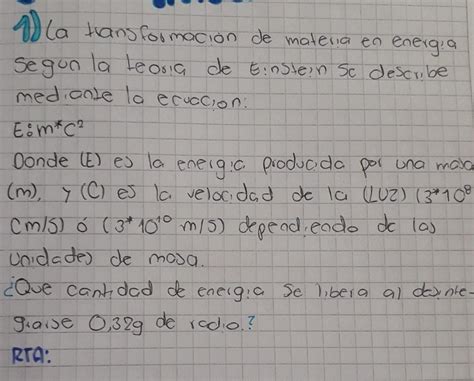 1) La transformación de materia en energia
segun la teoria de Einstein se describe
mediante la ecuacion:
E:m*C²
Donde (E) es la energia producida por una masa
(m), y (C) es la velocidad de la (LUZ) (3*10⁸
Cm/S) ó (3*10¹⁰ m/S) dependiendo de las
unidades de masa.
¿Que cantidad de energia se libera al desinte-
grarse 0,32g de radio.?
RTA: